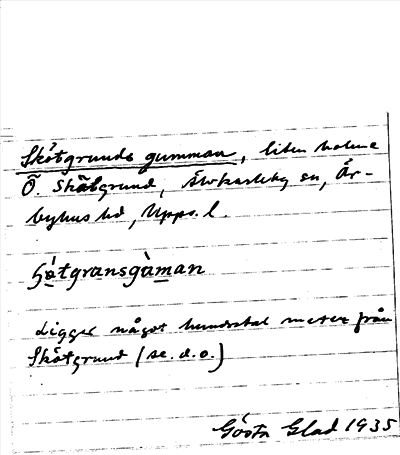 Skötgrunds gumman, liten holme
Ö. Skötgrund, Älvkarleby sn, Ör-
byhus hd, Upps. l.
Sǿtgransgùman
Ligger något hundratal meter från
Skötgrund (se. d. o.)
Gösta Glad 1935